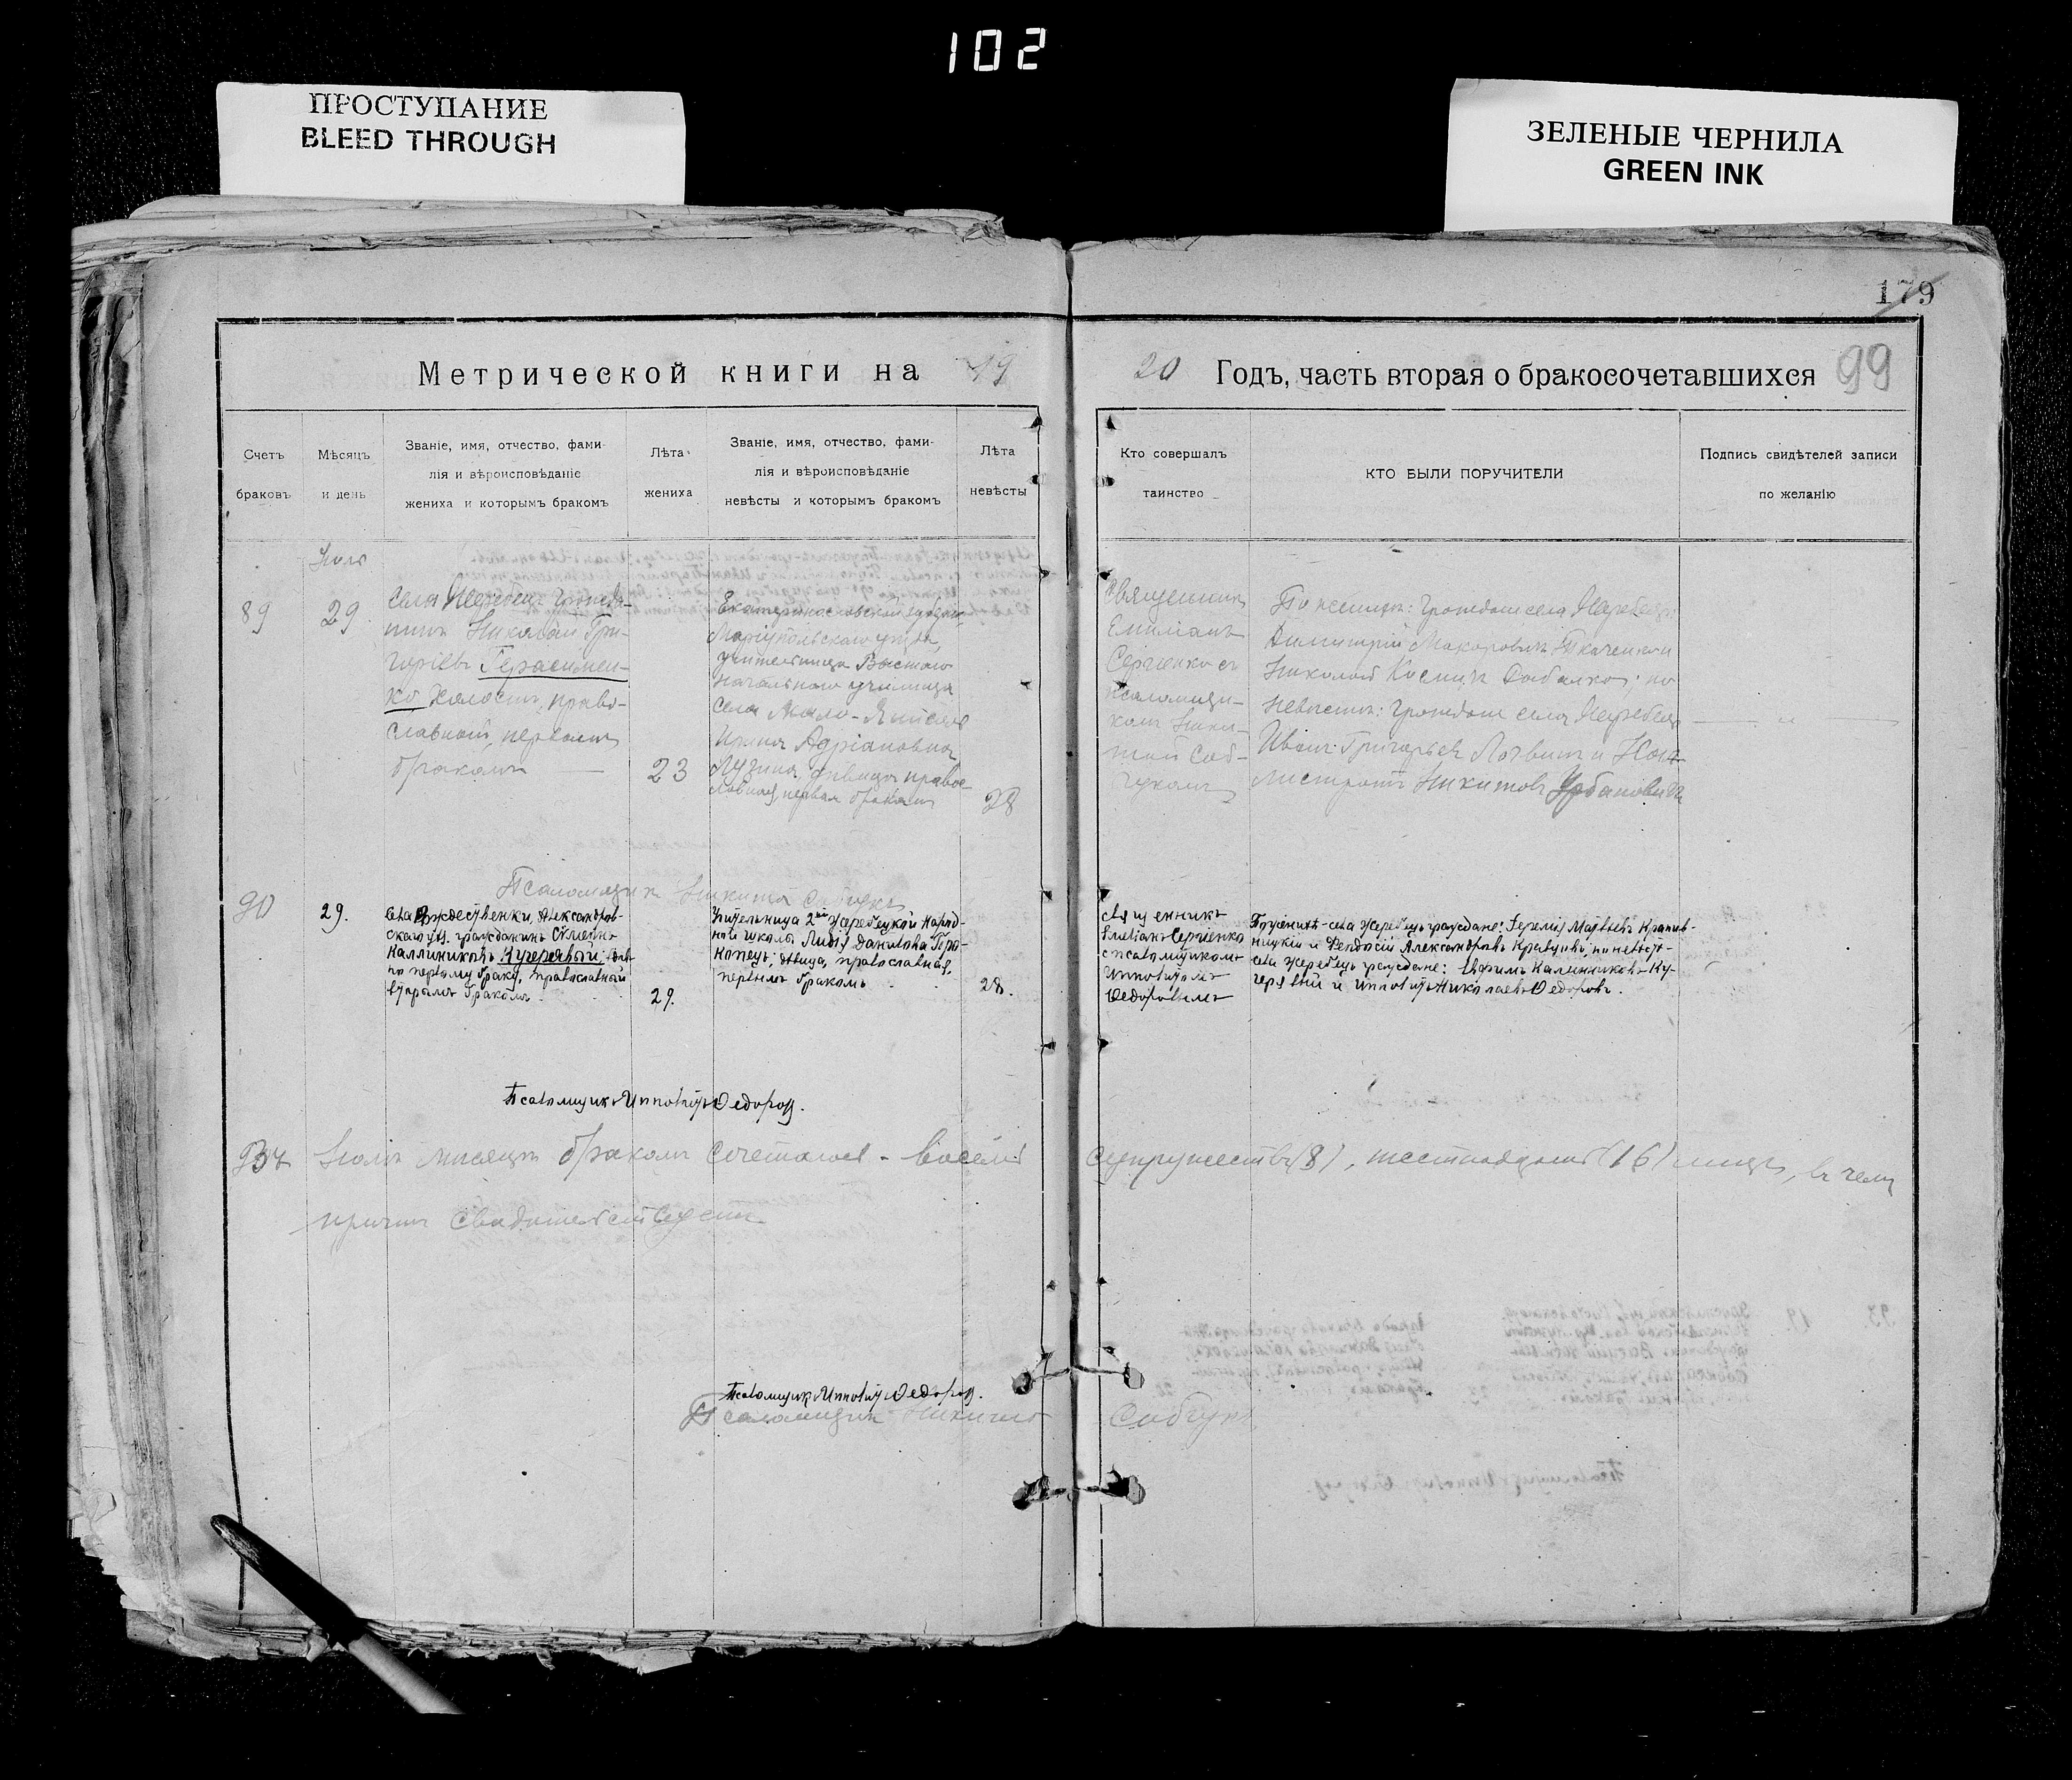 102
ПРОСТУПАНИЕ
BLEED THROUGH
ЗЕЛЕНЫЕ ЧЕРНИЛА
GREEN INK
179
Метрической книги на 19
20 Годъ, часть вторая о бракосочетавшихся 99
Счетъ
браковъ
Мѣсяцъ
и день
Званіе, имя, отчество, фами-
лія и вѣроисповѣданіе
жениха и которымъ бракомъ
Лѣта
жениха
Званіе, имя, отчество, фами-
лія и вѣроисповѣданіе
невѣсты и которымъ бракомъ
Лѣта
невѣсты
Кто совершалъ
таинство
КТО БЫЛИ ПОРУЧИТЕЛИ
Подпись свидѣтелей записи
по желанію
89
29
Села Жеребецъ гражда-
нинъ Николай Гри-
горіевъ Герасимен-
ко холостъ, право-
славный, первымъ
бракомъ
23
Екатеринославской губерніи
Маріупольскаго уѣзда,
учительница Высшаго
начальнаго училища
села Мало-
Ирина Адріановна
дѣвица правос-
лавная, первымъ бракомъ
28
Священникъ
Емиліанъ
Сергіенко съ
псаломщи-
комъ Ники-
той Соб-
чукомъ
По женихѣ: граждане села Жеребецъ
Димитрій Макаровъ Ткаченко и
Николай Косминъ; по
невѣстѣ: граждане села Жеребецъ
Иванъ Григорьевъ Логвинъ и Кон
Никитовъ Урбановичъ
Псаломщикъ Никита Собчукъ
90
29.
Села Рождественки, Александров-
скаго уѣз. гражданинъ Сѵмеонъ
Каллиниковъ Кучерявый, вдов
по первому браку, православный
вторымъ бракомъ.
29.
Учительница 2ой Жеребецкой народ-
ной школы Лидія Даниловна Геро-
копецъ, дѣвица, православная,
первымъ бракомъ.
28.
Священникъ
Емиліанъ Сергіенко
съ псаломщикомъ
Ипполитомъ
Ѳедоровымъ
По женихѣ - села Жеребецъ граждане: Іеремія Матвѣевъ Кропив-
ницкій и Ѳеодосій Александровъ Кравцовъ; по невѣстѣ-
села Жеребецъ граждане: Евфимъ Каллиниковъ Ку-
черявый и Ипполитъ Николаевъ Ѳедоровъ.
Псаломщикъ Ипполитъ Ѳедоров.
Іюлѣ мѣсяцѣ бракомъ сочеталось - восемь супружествъ (8), шестнадцать (16) лицъ, въ чемъ
причтъ свидѣтельствуетъ
Псаломщикъ Ипполитъ Ѳедоров.
Псаломщикъ Никита Собчукъ